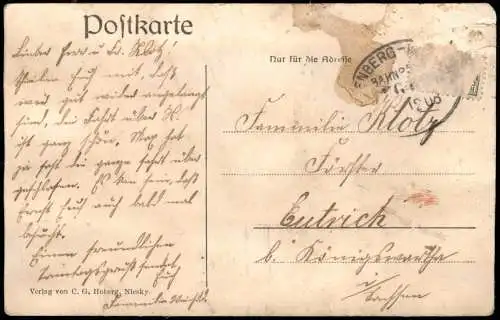 Postkarte
Lieber Herr u. Fr. Klotz!
theilen Euch mit, daß
wir gut wieder angelangt
sind, die Fahrt über H.
ist ganz schön, Max hat
ja fast die ganze Fahrt über
geschlafen. Es kann sein, daß
Euch auch bald mal
besucht.
Einen freundlichen
Sonntagsgruß sendet
Euch
Familie
Verlag von C. G. Hoberg, Niesky
Nur für die Adresse
ENBERG-
BAHNPO
Familie Klotz
Förster
Eutrich
b. Königswartha
i/
Sachsen